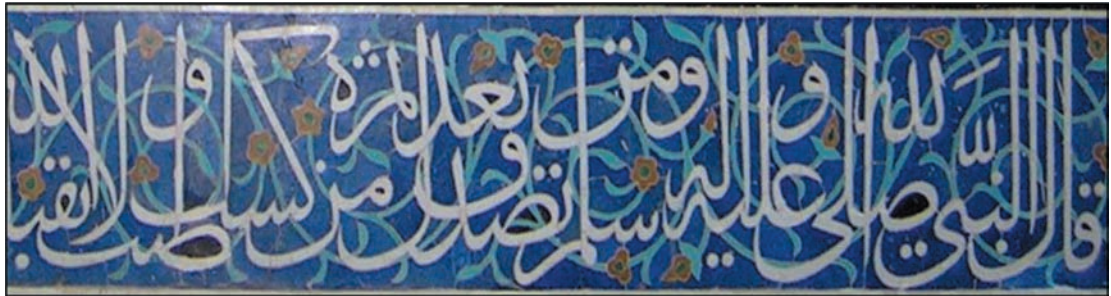 قال النبي صلى الله عليه وآله وسلم من تصدق بعدل تمرة من كسب طيب ولا يقبل الله